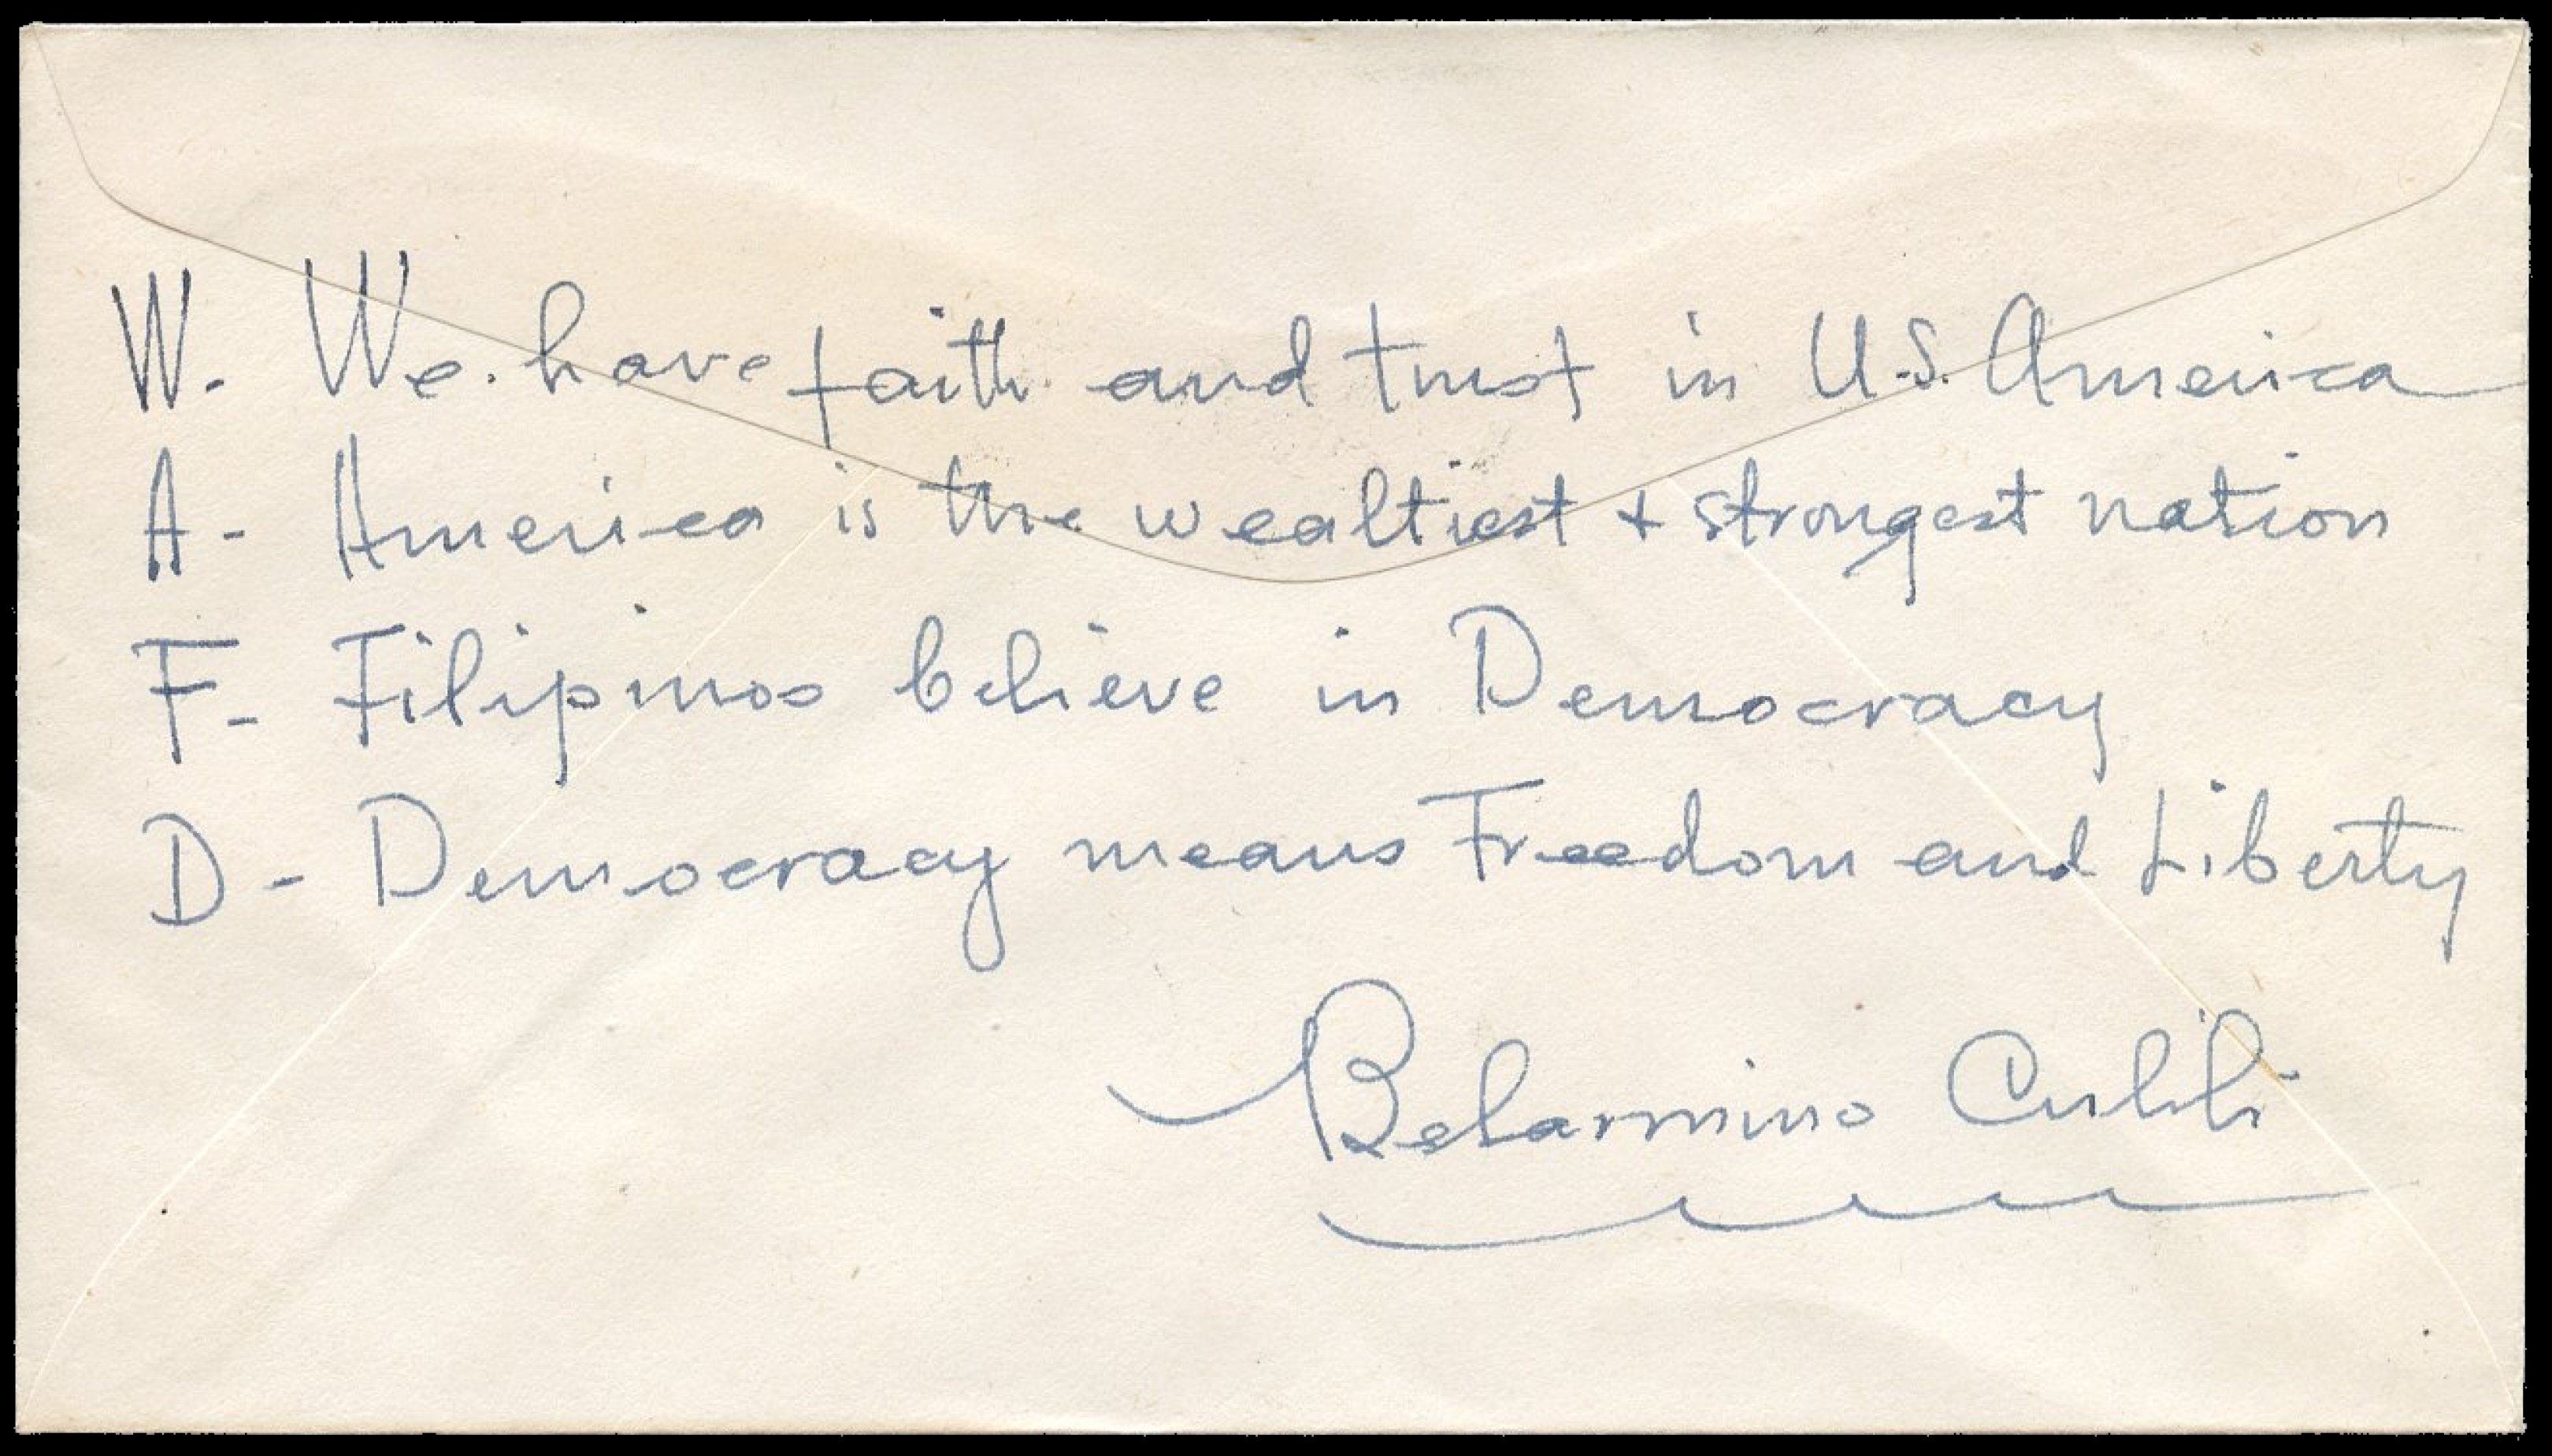 W. We have faith and trust in U.S. America
A - America is the wealtiest + strongest nation
F - Filipinos believe in Democracy
D - Democracy means Freedom and Liberty
Belarmino